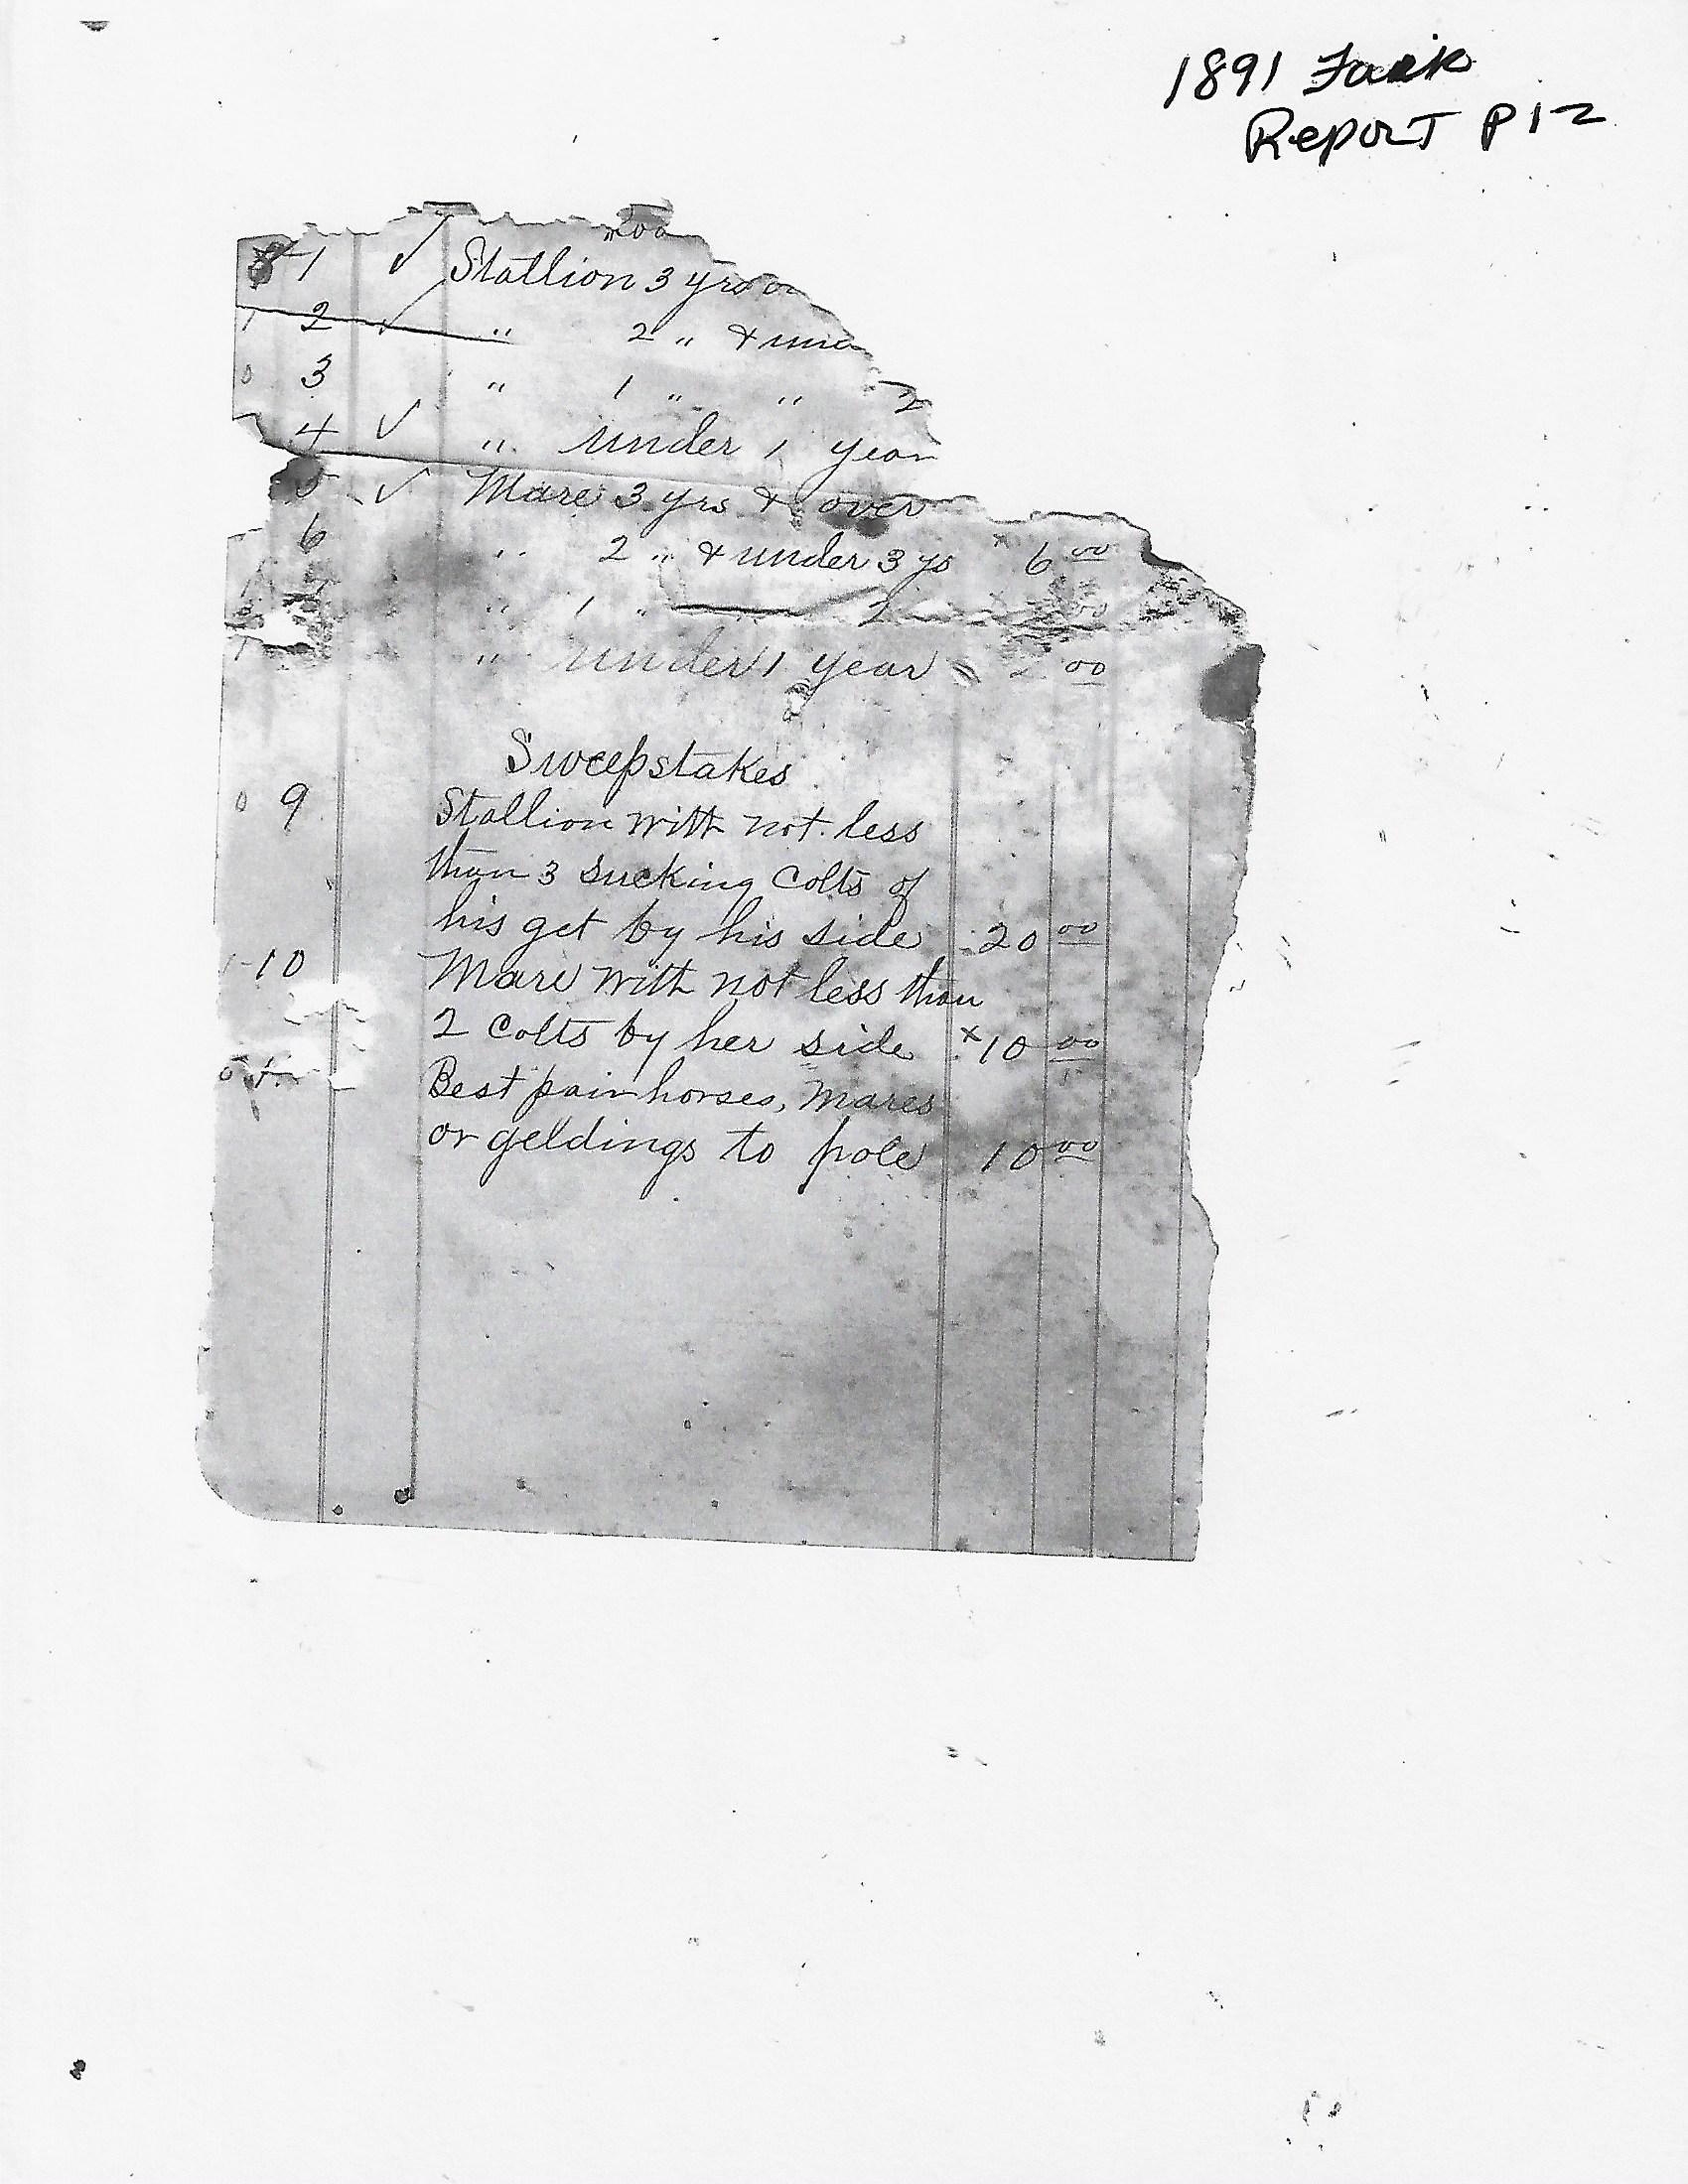 1891 Fair
Report P12
1 ✓ Stallion 3 yrs
1 2 ✓ " 2 " &
0 3 " 1 " " 2
4 ✓ " under 1 year
5 ✓ Mare 3 yrs & over
6 " 2 " & under 3 ys × 6 00
" 1 " — 2
" under 1 year 2 00
Sweepstakes
0 9 Stallion with not less
than 3 sucking Colts of
his get by his side 20 00
10 Mare with not less than
2 Colts by her side ×10 00
Best pair horses, Mares
or geldings to pole 10 00